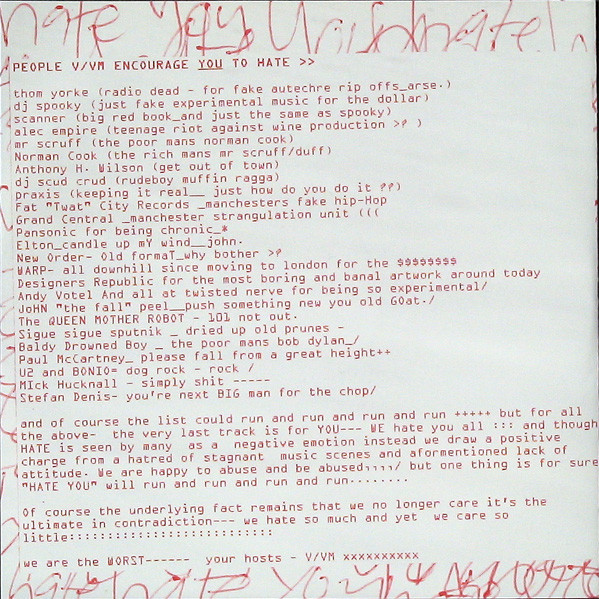 hate You Unisonhate!
PEOPLE V/VM ENCOURAGE YOU TO HATE >>
thom yorke (radio dead - for fake autechre rip offs_arse.)
dj spooky (just fake experimental music for the dollar)
scanner (big red book_and just the same as spooky)
alec empire (teenage riot against wine production >? )
mr scruff (the poor mans norman cook)
Norman Cook (the rich mans mr scruff/duff)
Anthony H. Wilson (get out of town)
dj scud crud (rudeboy muffin ragga)
praxis (keeping it real__ just how do you do it ??)
Fat "Twat" City Records _manchesters fake hip-Hop
Grand Central _manchester strangulation unit (((
Pansonic for being chronic_*
Elton_candle up mY wind__john.
New Order- Old formaT_why bother >?
WARP- all downhill since moving to london for the $$$$$$$$
Designers Republic for the most boring and banal artwork around today
Andy Votel And all at twisted nerve for being so experimental/
JoHN "the fall" peel__push something new you old GOat./
The QUEEN MOTHER ROBOT - 101 not out.
Sigue sigue sputnik _ dried up old prunes -
Baldy Drowned Boy _ the poor mans bob dylan_/
Paul McCartney_ please fall from a great height++
U2 and BONIO= dog rock - rock /
MIck Hucknall - simply shit -----
Stefan Denis- you're next BIG man for the chop/
and of course the list could run and run and run and run +++++ but for all
the above-  the very last track is for YOU--- WE hate you all ::: and though
HATE is seen by many  as a  negative emotion instead we draw a positive
charge from a hatred of stagnant  music scenes and aformentioned lack of
attitude. We are happy to abuse and be abused,,,,/ but one thing is for sure
"HATE YOU" will run and run and run and run........
Of course the underlying fact remains that we no longer care it's the
ultimate in contradiction--- we hate so much and yet  we care so
little:::::::::::::::::::::::::::
we are the WORST------  your hosts - V/VM xxxxxxxxxx